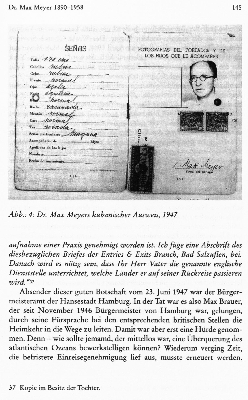 Dr. Max Meyer 1890–1958 145
SEÑAS
FOTOGRAFIAS DEL PORTADOR Y DE
LOS HIJOS QUE LE ACOMPAÑAN
Max Meyer
Abb. 4: Dr. Max Meyers kubanischer Ausweis, 1947
aufnahme einer Praxis genehmigt worden ist. Ich füge eine Abschrift des
diesbezüglichen Briefes der Entries & Exits Branch, Bad Salzuflen, bei.
Danach ward es nötig sein, dass Ihr Herr Vater die genannte englische
Dienststelle unterrichtet, welche Länder er auf seiner Rückreise passieren
wird.“³⁷
Absender dieser guten Botschaft vom 23. Juni 1947 war der Bürger-
meisteramt der Hansestadt Hamburg. In der Tat war es also Max Brauer,
der seit November 1946 Bürgermeister von Hamburg war, gelungen,
durch seine Fürsprache bei den entsprechenden britischen Stellen die
Heimkehr in die Wege zu leiten. Damit war aber erst eine Hürde genom-
men. Denn – wie sollte jemand, der mittellos war, eine Überquerung des
atlantischen Ozeans bewerkstelligen können? Wiederum verging Zeit,
die befristete Einreisegenehmigung lief aus, musste erneuert werden.
37 Kopie im Besitz der Tochter.